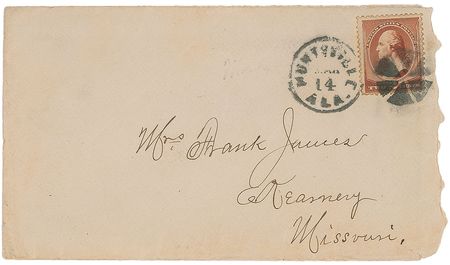 HUNTSVILLE
14
ALA.
Mrs Frank James
Kearney
Missouri.